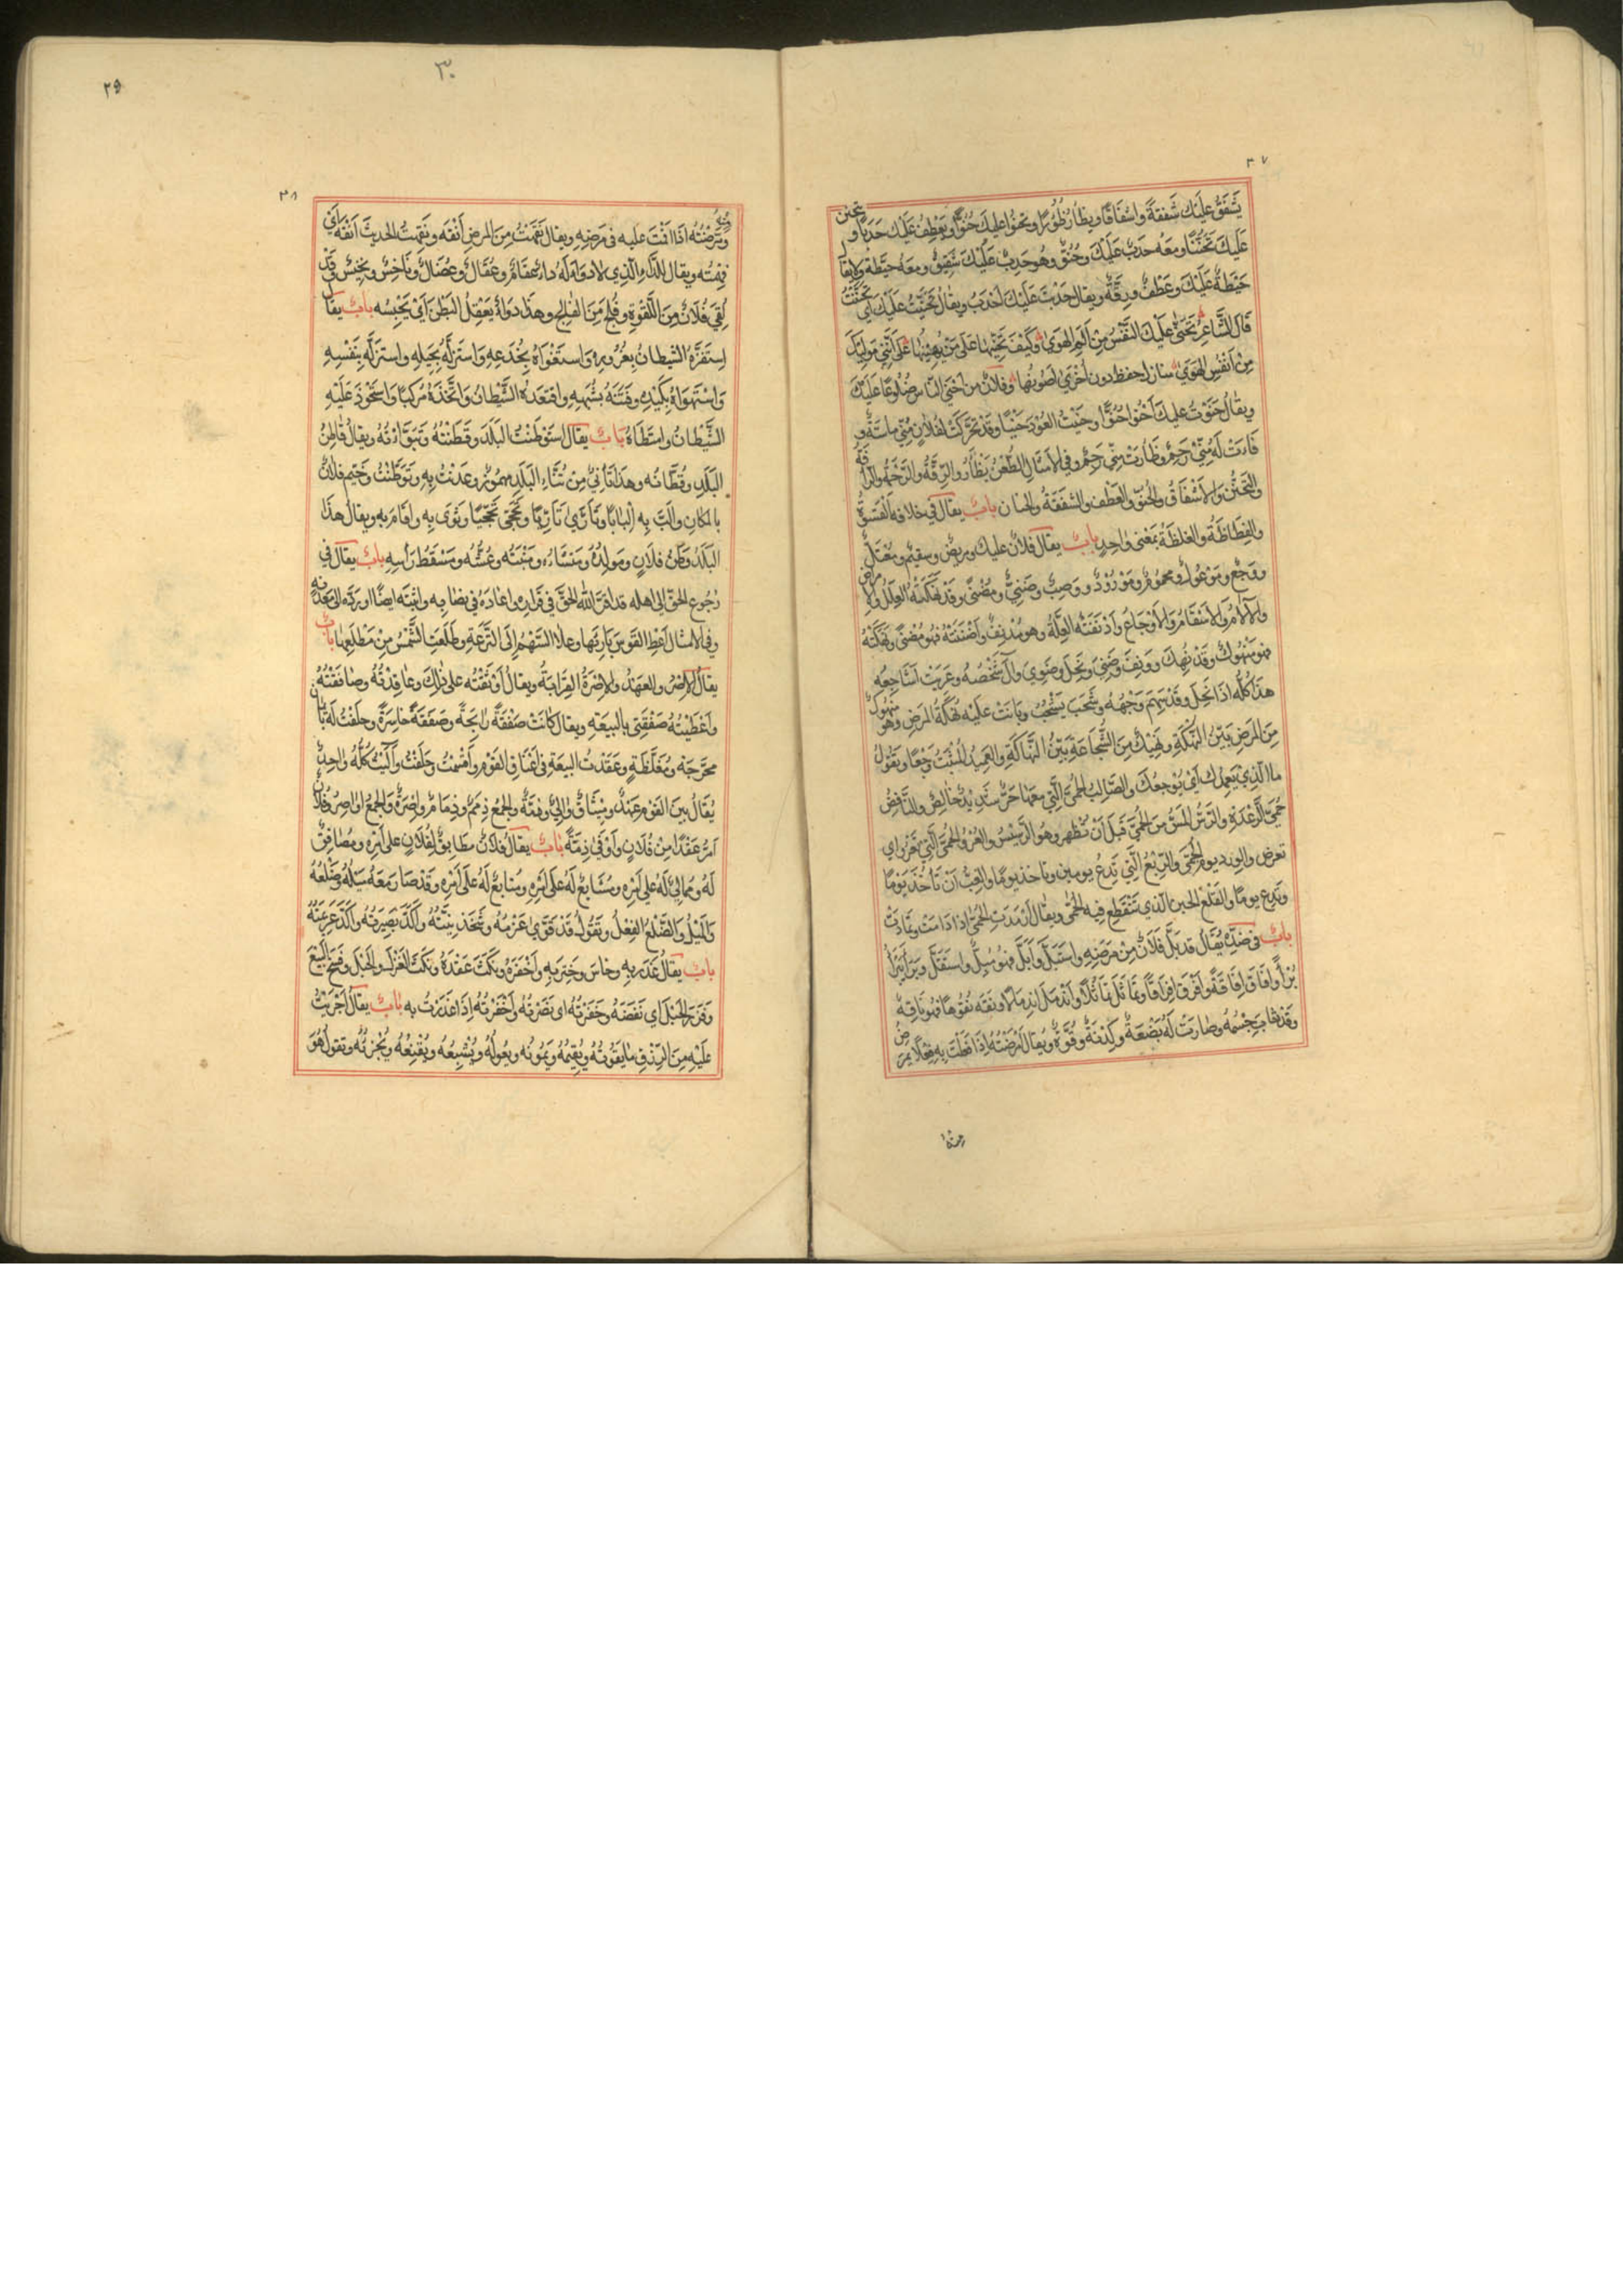 ٣٧
يَشْفَقُ عَلَيْكَ شَفَقَةً وَاِشْفَاقًا ويظأر ظُؤُرًا ويحنوا عليك حُنُوًّا ويَعْطِفُ عَلَيْكَ حَدَبًا و يتحنن
عَلَيْكَ تَحَنُّنًا ومعه حدبٌ عَلَيْكَ وحُنُوٌّ وهو حَدِبٌ عَلَيْكَ شَفِيقٌ ومعه حيطة ولا يقال
حَيْطَةٌ عَلَيْكَ وعَطْفٌ ورِقَّةٌ ويقال حَدَبْتَ عَلَيْكَ اَحْدَبُ ويقال تَحَنَّيْتُ عَلَيْكَ اَي تَحَنَّنْتُ
قَالَ الشَّاعِرُ تَحَنَّى عَلَيْكَ النَّفْسُ مِنْ اَلَمِ الهَوَى وَكَيْفَ تَحَنِّيهَا عَلَى مَنْ يُهِينُهَا عَلَى اَنَّنِي
مِنْ اَنْفُسِ الهَوَى احفظ دون اُخْرَى اَصُونُهَا وفلانٌ من اَحْنَى النَّاس ضُلُوعًا عَلَيْكَ
ويقالُ حَنَوْتُ عليك اَحْنُوا حُنُوًّا وحَنَيْتُ العُوْدَ حَنْيًا وقَدْ تَحَرَّكَتْ لِفُلانٍ مِنِّي ماسَّةٌ و
له مِنِّي رَحِمٌ وظَأَرَتْ مِنِّي رَحِمٌ وفي الاَمْثَالِ الطَّعْنُ يَظْأَرُ والرِّقَّةُ والرَّحْمَةُ والرَّأْفَةُ
والتَّحَنُّنُ وَالاِشْفَاقُ والحُنُوُّ والعَطْفُ والشَّفَقَةُ والحنان بابٌ يقال في خلافه القَسْوَةُ
والفَظَاظَةُ والغِلْظَةُ بمَعْنًى واحدٍ بابٌ يقال فلانٌ عليل ومريضٌ وسقيمٌ ومُعْتَلٌّ
ووَجِعٌ ومَوْعُوكٌ ومحمُومٌ ومَوْرُودٌ ووَصِبٌ وضَنِيٌّ ومُضْنًى وقَدْ نَهَكَتْهُ العِلَلُ والاَمراض
والآلامُ وَالاَسْقَامُ وَالاَوْجَاعُ وَاَدْنَفَتْهُ العِلَّةُ وهو مُدْنِفٌ وَاَضْنَتْهُ فهو مُضْنًى ونَهَكَتْهُ
فهو مَنْهُوكٌ وقد نُهِكَ ودَنِفَ وَضَنِيَ ونَحِلَ وضَوِيَ وآلَ شَخْصُهُ وعَرِيَتْ اَشَاجِعُه
هذا كُلُّه اذا نَحِلَ وقَدْ سَهِمَ وَجْهُهُ وشَحَبَ يَشْحُبُ وبَانَتْ عَلَيْهِ نَهْكَةُ المَرَضِ وهو مَنْهُوكٌ
مِنَ المَرضِ بَيِّنُ النَّهْكَةِ ونَهِيكٌ مِنَ الشَّجَاعَةِ بَيِّنُ النَّهَاكَةِ والعَمِيدُ المُثْبَتُ وَجَعًا ويَقُولُ
ما الَّذِي يَعْمِدُكَ اَيْ يُوجِعُكَ والصَّالِبُ الحُمَّى الَّتِي معها حَرٌّ شَدِيدٌ خَالِصٌ والنَّافِضُ
حُمَّى الرِّعْدَةِ والرَّسُّ المَسُّ مِنَ الحُمَّى قَبلَ اَنْ تَظْهَر وهُوَ الرَّسِيسُ والعُرَوا الحُمَّى الَّتِي تَعْرُو اي
تعرض والوِرد يوم الحُمَّى والرِّبْعُ الَّتِي تَدَعُ يومين وتاخذ يومًا والغِبُّ اَنْ تَاْخُذَ يَوْمًا
وتَدَعَ يومًا والقَلْعُ الحين الَّذي تنقَطِع فيه الحُمَّى ويقال اَرْمَدَتِ الحُمَّى اِذا دَامَتْ وتمادَتْ
بابٌ في ضدّه يُقَالُ قد بَلَّ فُلَانٌ مِنْ مَرَضِهِ واسْتَبَلَّ وَاَبَلَّ فهو مُبِلٌّ واستَقَلَّ وبَرَاَ يَبْرَأُ
بُرْأً واَفَاقَ اِفَاقَةً وافرَقَ اِفْرَاقًا وتَمَاثَلَ تَمَاثُلًا وانْدَمَلَ اندِمَالًا ونَقَه نُقُوهًا فهو نَاقِه
وقَدْ ثابَ جِسْمُهُ وصَارَتْ لَهُ بَضْعَةٌ وكِدْنَةٌ وقُوَّةٌ ويُقالُ اَمْرَضْتُهُ اِذَا فَعَلْتَ بِهِ فِعْلًا يمرض
منه
٢٩
٣٠
٣٨
ومَرَّضْتُه اذَا قُمْتَ عليه في مَرَضِهِ ويقال نَقَهْتُ مِنَ المرض اَنْقَه ونَقِهْتُ الحديثَ اَنْقَهُ اَيْ
فَهِمْتُه ويقال للدَّاءِ الَّذِي لا دواءَ لَهُ داءٌ عقامٌ وعُقَالٌ وعُضَالٌ ونَاخِسٌ ونخِيسٌ وقد
لُقِيَ فُلَانٌ مِنَ اللَّقْوَةِ وفُلِجَ مِنَ الفَالِجِ وهذا دَوَاءٌ يَعْقِلُ البَطْنَ اَيْ يَحْبِسُه بابٌ يقال
اِسْتَفَزَّه الشيطانُ بغُرُورِهِ وَاستَغْوَاهُ بِخُدَعِهِ وَاسْتَزَلَّهُ بِحِيَلِهِ واستزلَّه بِنَفْسِهِ
وَاسْتَهْوَاهُ بِكَيْدِهِ وفَتَنَهُ بِشُبَهِهِ واقتَعَدَهُ الشَّيْطانُ وَاتَّخَذَهُ مَرْكَبًا وَاسْتَحْوَذَ عَلَيْهِ
الشَّيْطَانُ وامتَطَاهُ بَابٌ يقالُ استَوْطَنْتُ البَلَدَ وقَطَنْتُهُ وتَبَوَّاْتُهُ ويقالُ قَاطِنُ
البَلَدِ وقُطَّانُه وهذا تَانِئٌ مِنْ تُنَّاءِ البَلَدِ مهموز وعَدَنْتُ بِهِ وتَوَطَّنْتُ وخَيَّم فلانٌ
بالمكانِ واَلَبَّ بِهِ اِلْبَابًا وتَأَرَّى تَأَرِّيًا وتَحَجَّى تَحَجِّيًا وثَوَى بِهِ واقَامَ بِهِ ويقالُ هذا
البَلَدُ وَطَنُ فُلَانٍ ومَولِدُهُ ومَنشَاءُه ومَنْبَتُه وعُشُّهُ ومَسْقَطُ رَأْسِهِ بابٌ يقال في
رُجُوعِ الحَقّ الى اهله قد اقرَّ اللهُ الحَقَّ في قَرَارِه واعَادَهُ في نصابِه واثبَتَه ايضًا او ردَّه الى مَعْدِنه
وفي الامثال اَعْطِ القَوْسَ بَارِيَها وعادَ السَّهْمُ اِلَى النَّزَعَةِ وطَلَعَتِ الشَّمْسُ مِنْ مَطْلَعِهَا باب
يقالُ الاِصْرُ والعَهْدُ والاِصْرَةُ القرابَةُ ويقالُ اَوْثَقْتُه على ذٰلِكَ وعَاقَدْتُهُ وصَافَقْتُهُ
واَعْطَيْتُهُ صَفْقَتِي بالبَيعَةِ ويقال كانَتْ صَفْقَةً رَابَحَةً وصَفْقَةً خَاسِرَةً وحلَفْتُ لَهُ بايمان
مُحَرِّجَه ومُغَلَّظَةٍ وعَقَدْتُ البَيعَةَ في اَعْنَاقِ القَوْمِ واَقْسَمْتُ وحَلَفْتُ وآلَيْتُ كُلُّهُ وَاحِدٌ
يُقَالُ بينَ القَوْمِ عَهْدٌ ومِيثَاقٌ واِلٌّ وذِمَّةٌ والجمعُ ذِمَمٌ وذِمَامٌ واِصْرَةٌ والجمعُ اوَاصِرُ وفُلَانٌ
اَمَرُّ عَقْدًا مِنْ فُلَانٍ واَوْفَى ذِمَّةً بابٌ يقالُ فُلانٌ مطابِقٌ لِفُلَانٍ عَلَى اَمْرِه ومُصَافِقٌ
لَهُ ومُمَالِئٌ لَهُ على اَمْرِه ومُشَايِعٌ لَهُ عَلَى اَمْرِهِ ومُتَابِعٌ لَهُ عَلَى اَمْرِهِ وقَدْ صَارَ مَعَهُ مَيْلُهُ وضَلْعُهُ
وَالمَيْلُ والضَّلْعُ الفِعْلُ وتَقُولُ قَدْ قَوَّى عَزْمَهُ وشَحَذَ نِيَّتَهُ واَكَّدَ بَصِيرَتَهُ واَكَّدَ عَزِيمَتَهُ
بابٌ يقالُ غَدَرَ بِهِ وخَاسَ وخَتَرَ بِهِ واَخْفَرَهُ ونَكَثَ عَقْدَهُ ونَكَثَ الغَزْلَ والحَبْلَ وفَسَخَ البَيْعَ
الحَبْلَ اي نَقَضَهُ وخَفَرْتُهُ اي نَصَرْتُهُ واَخْفَرْتُهُ اِذَا غَدَرْتُ به بابٌ يقالُ اَجْرَيْتُ
عَلَيْهِ مِنَ الرِّزْقِ مَا يَقُوتُهُ ويُقِيمُهُ ويَمُونُه ويَعُولُهُ ويُشْبِعُهُ ويُقْنِعُهُ ويُجْزِئُهُ وتقولُ هُوَ